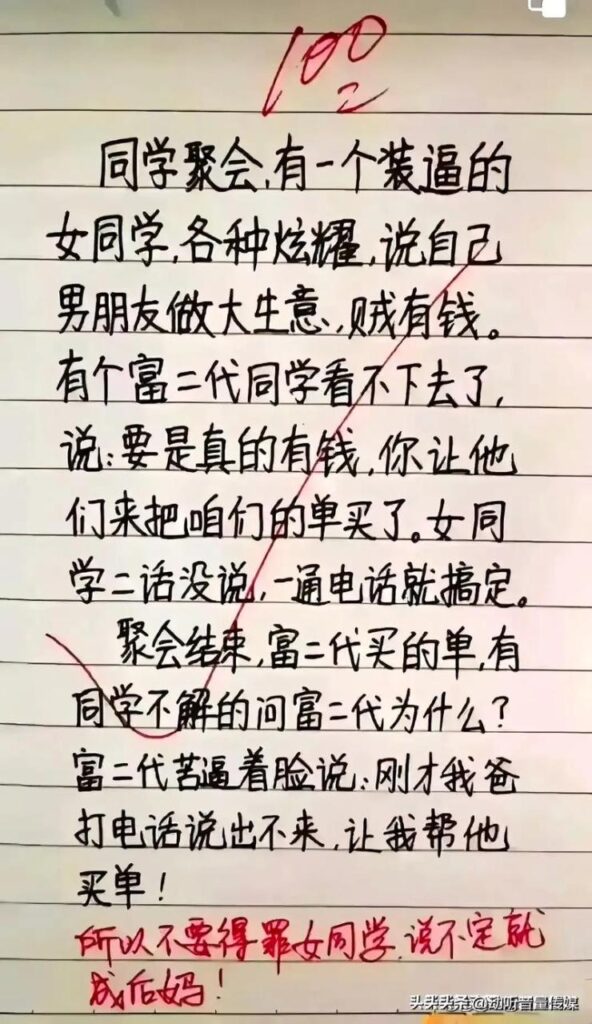 100
同学聚会,有一个装逼的
女同学,各种炫耀,说自己
男朋友做大生意,贼有钱。
有个富二代同学看不下去了,
说:要是真的有钱,你让他
们来把咱们的单买了。女同
学二话没说,一通电话就搞定。
聚会结束,富二代买的单,有
同学不解的问富二代为什么?
富二代苦逼着脸说:刚才我爸
打电话说出不来,让我帮他
买单!
所以不要得罪女同学,说不定就
成后妈!
@动听音量传媒